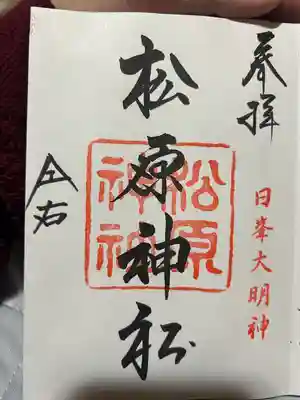 奉拝
日峯大明神
松原神社
松原
神社